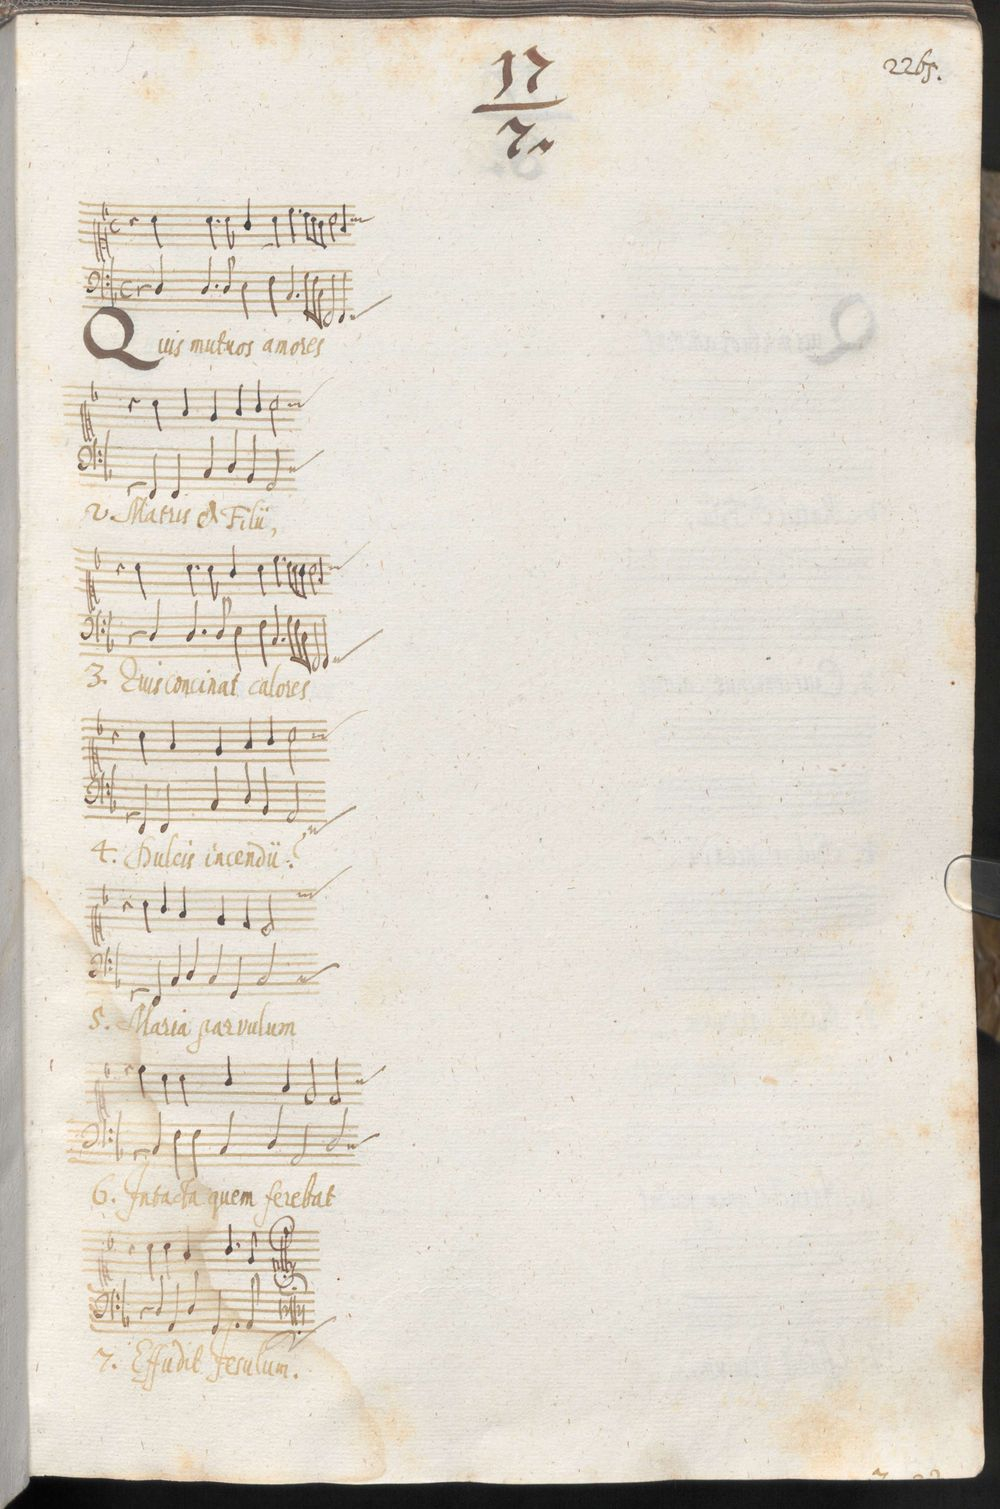 2265.
17
7.
Quis mutuos amores
2. Matris et Filii,
3. Quis concinat calores
4. Dulcis incendii?
5. Maria parvulum
6. Intacta quem ferebat
7. Effudit Jesulum.